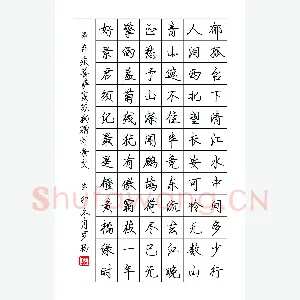 郁孤台下清江水中间多少行
人泪西北望长安可怜无数山
青山遮不住毕竟东流去江晚
正愁余山深闻鹧鸪荷尽已无
擎雨盖菊残犹有傲霜枝一年
好景君须记最是橙黄橘绿时
辛弃疾菩萨蛮苏轼赠刘景文